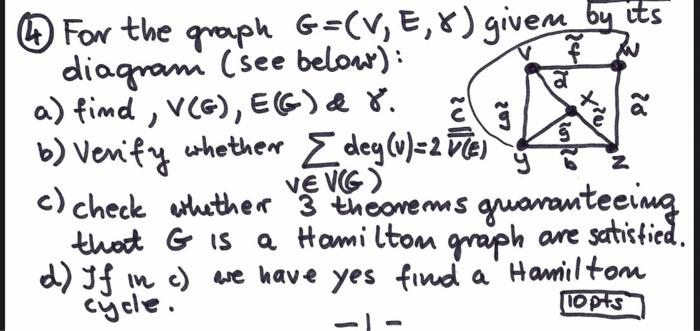 ④ For the graph G=(V, E, γ) given by its
diagram (see below):
a) find, V(G), E(G) & γ.
b) Verify whether ∑ deg(v)=2 V(E)
v∈V(G)
c) check whether 3 theorems guaranteeing
that G is a Hamilton graph are satisfied.
d) If in c) we have yes find a Hamilton
cycle.
10 pts
-1-
v f̃ w
d̃
x
c̃ g̃ ẽ ã
g̃
y b̃ z